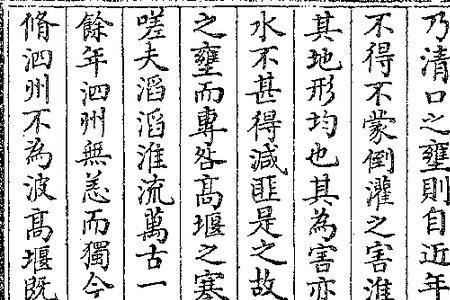 乃清口之壅則自近年
不得不蒙倒灌之害淮
其地形均也其為害亦
水不甚得減匪是之故
之壅而專咎高堰之塞
嗟夫滔滔淮流萬古一
餘年泗州無恙而獨今
脩泗州不為波高堰既